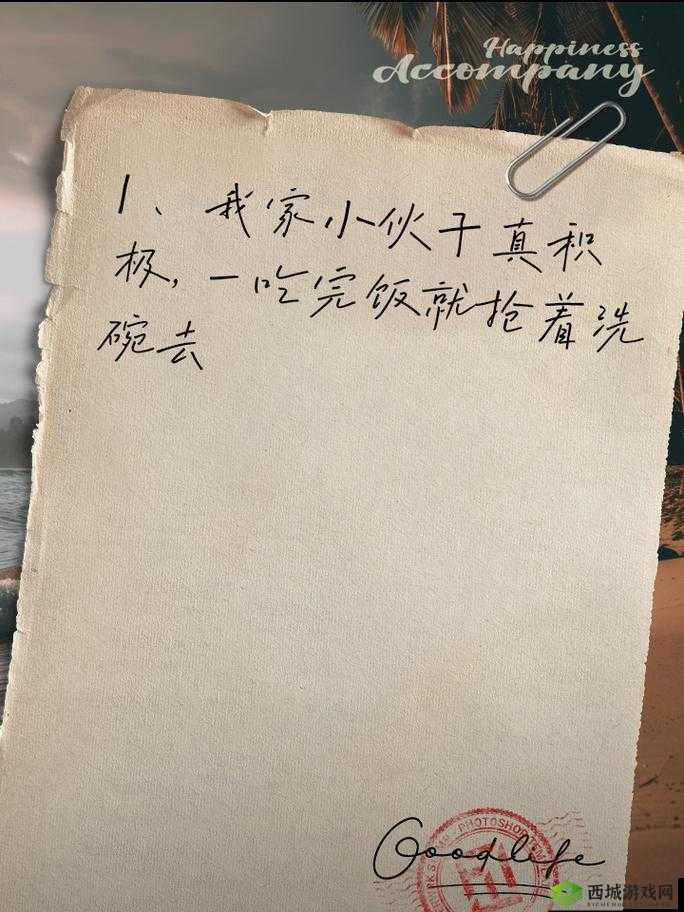 Happiness
Accompany
1、我家小伙干真积
极,一吃完饭就抢着洗
碗去
PHOTOSHOP
Goodlife
西城游戏网